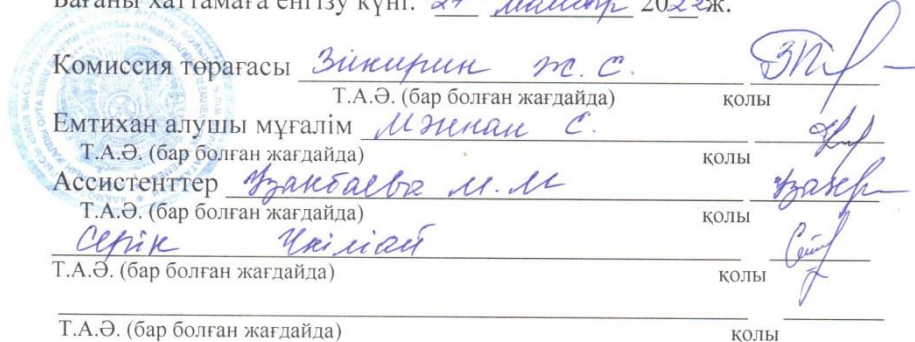 Бағаны хаттамаға енгізу күні: 27 мамыр 2022ж.
Комиссия төрағасы Зикирин Ж. С.
Т.А.Ә. (бар болған жағдайда) қолы
Емтихан алушы мұғалім Мәннан С.
Т.А.Ә. (бар болған жағдайда) қолы
Ассистенттер Узакбаева М. М
Т.А.Ә. (бар болған жағдайда) қолы
Серік
Т.А.Ә. (бар болған жағдайда) қолы
Т.А.Ә. (бар болған жағдайда) қолы